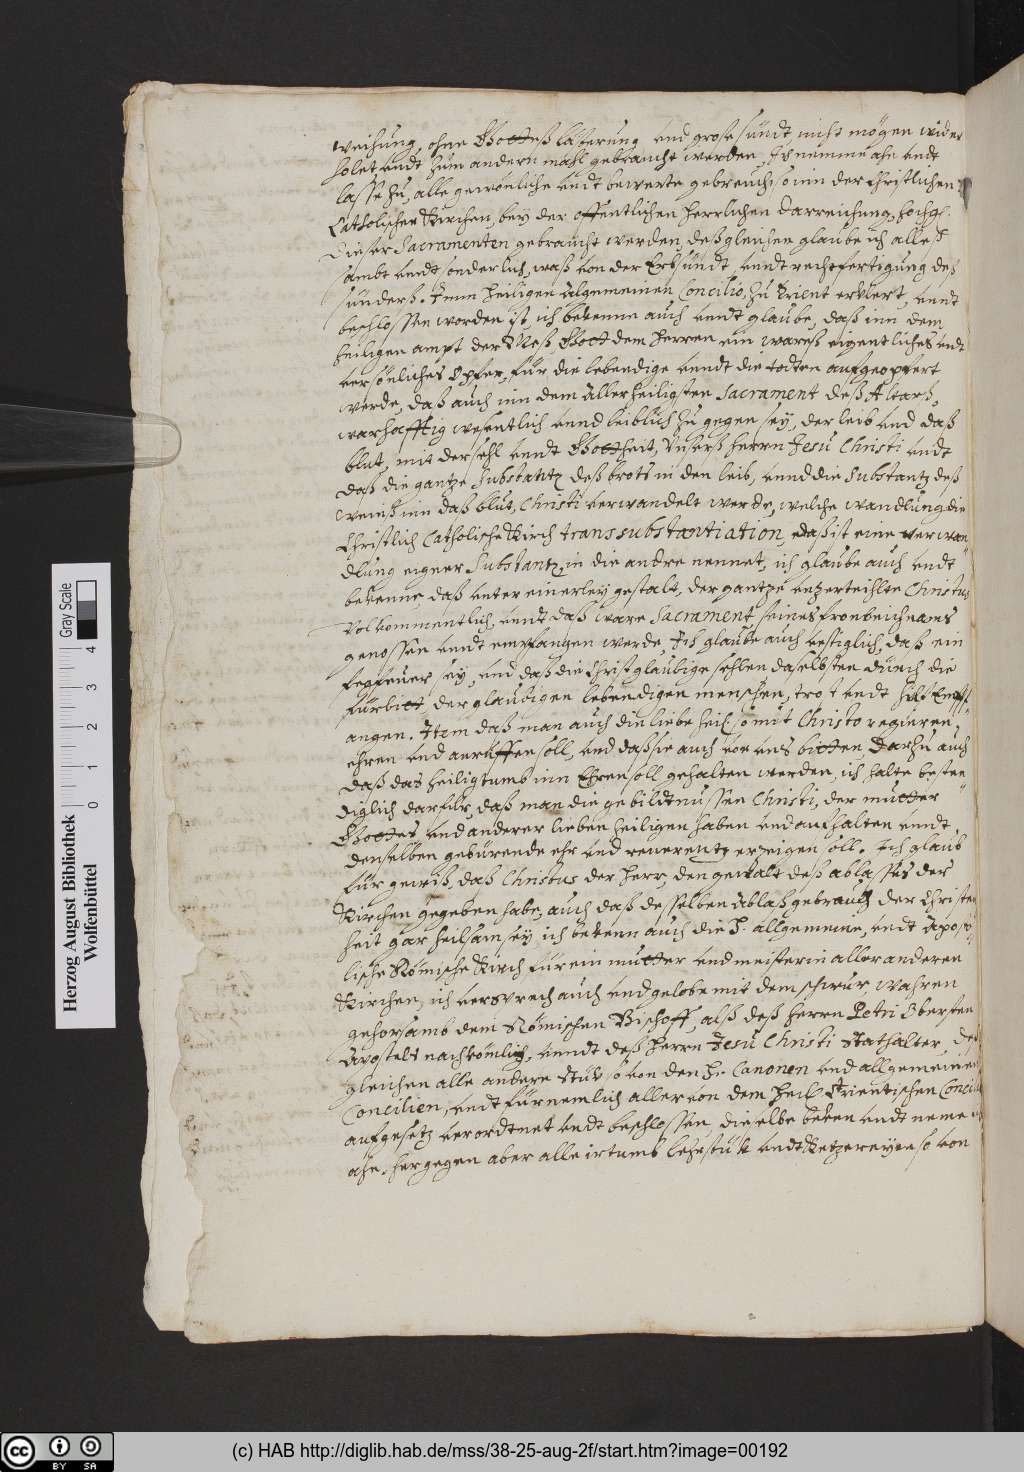 weihung, ohne Gotteß lästerung vnd grose sündt nicht mögen wider
holet vndt zum andern mahl gebraucht werden, Ich nemme ahn vndt
lasse zu, alle gewönliche vndt bewerte gebreuch, so inn der Christlichen
Catholischen Kirchen, bey der offentlichen herrlichen darreichung, hochgl.
Dieser Sacramenten gebraucht werden, deßgleichen glaube ich alleß
sambt vndt sonderlich, waß von der Erbsündt vnndt rechtfertigung deß
sünderß. Inn heiligen Algemeinen Concilio, zu Trient erklert, vnndt
beschlossen worden ist, ich bekenne auch vnndt glaube, daß inn dem
heiligen ampt der Meß, Gott dem herren ein wareß eigentliches vndt
versönliches Opfer, für die lebendige vnndt die todten aufgeopfert
werde, daß auch inn dem Allerheiligsten Sacrament deß Altarß,
warhafftig wesentlich vnnd leiblich zu gegen sey, der leib vnd daß
blut, mit der sehl vnndt Gottheit, Vnserß herrn Jesu Christi vndt
daß die gantze Substantz deß brots in den leib, vnnd die Substantz deß
weinß inn daß blut, Christi verwandelt werde, welche wandlung die
Christlich Catholische Kirch transsubstantiation, daß ist eine verwan=
dlung eigner Substantz, in die andre nennet, ich glaube auch vndt
bekenne daß vnter einerley gestalt, der gantze vnzerteihlte Christus
Volkommentlich, vndt daß ware Sacrament, seines fronleichnams
genossen vndt empfangen werde, Ich glaube auch vestiglich, daß ein
fegfeuer sey, vnd daß die Christglaubige sehlen daselbsten durch die
fürbitt der glaubigen lebendigen menschen, trost vndt hilf Empf=
angen. Item daß man auch die liebe heil. so mit Christo regieren,
ehren vnd anruffen soll, vnd daß sie auch vor vns bitten, Darzu auch
daß das heiligtumb inn Ehren soll gehalten werden, ich halte besten=
diglich darfür, daß man die gebildtnussen Christi, der mutter
Gottes vnd anderer lieben heiligen haben vnd aufhalten vnndt
denselben gebürende ehr vnd reuerentz erzeigen soll. Ich glaub
für gewiß, daß Christus der herr, den gewalt deß ablasses der
Kirchen gegeben habe, auch daß desselben Ablaß gebrauch der Christen
heit gar heilsam sey, ich bekenn auch die H. allgemeine, vndt Apost=
lische Römische Kirch für ein mutter vnd meisterin aller anderen
Kirchen, ich versprech auch vnd gelobe mit dem schwur wahren
gehorsamb dem Römischen Bischoff, alß deß herrn Petri Obersten
Apostels nachkömling, vnndt deß herrn Jesu Christi Stathalter, des
gleichen alle andere stük so von den H. Canonen vnd allgemeinen
Concilien, vndt fürnemlich aller von dem heil. Trientischen Concili
aufgesetz verordtnet vndt beschlossen, dieselbe beken vndt neme ich
ahn. hergegen aber alle irtumb lehrstük vndt Ketzereyen so von
Herzog August Bibliothek
Wolfenbüttel
0 1 2 3 4
Gray Scale
cc BY SA
(c) HAB http://diglib.hab.de/mss/38-25-aug-2f/start.htm?image=00192